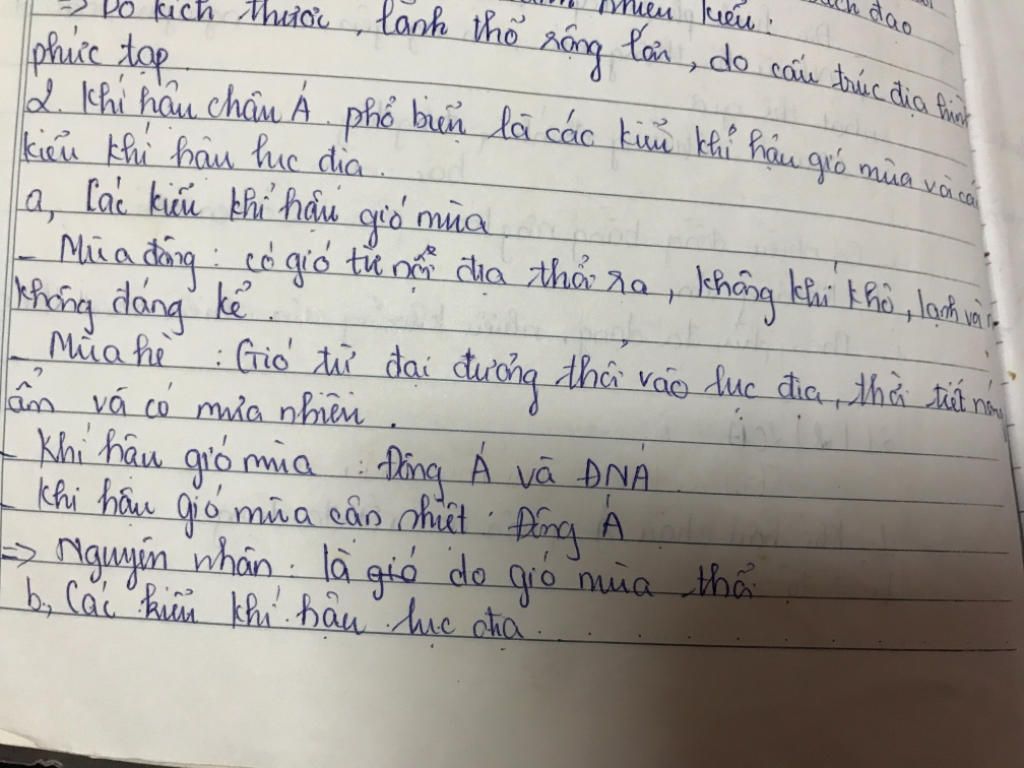 => Do kích thước, lãnh thổ rộng lớn, do cấu trúc địa hình
phức tạp
2. Khí hậu châu Á phổ biến là các kiểu khí hậu gió mùa và các
kiểu khí hậu lục địa.
a, Các kiểu khí hậu gió mùa
- Mùa đông: có gió từ nội địa thổi ra, không khí khô, lạnh và
không đáng kể
- Mùa hè: Gió từ đại dương thổi vào lục địa, thời tiết nóng
ẩm và có mưa nhiều.
- Khí hậu gió mùa: Đông Á và ĐNÁ
- Khí hậu gió mùa cận nhiệt: Đông Á
=> Nguyên nhân: là gió do gió mùa thổi
b, Các kiểu khí hậu lục địa